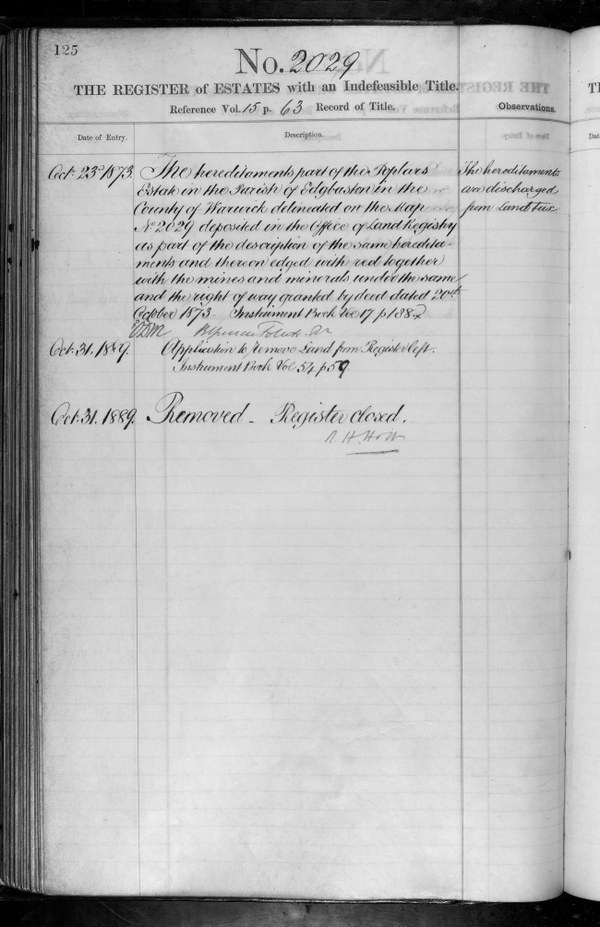 125
No. 2029
THE REGISTER of ESTATES with an Indefeasible Title.
Reference Vol. 15 p. 63 Record of Title.
Observations.
Date of Entry.
Description.
Oct. 23rd 1873.
The hereditaments part of the Poplars
Estate in the Parish of Edgbaston in the
County of Warwick delineated on the Map
No 2029 deposited in the Office of Land Registry
as part of the description of the same heredita-
ments and thereon edged with red together
with the mines and minerals under the same
and the right of way granted by deed dated 20th
October 1873. Instrument Book Vol 17 p 138
The hereditaments
are discharged
from Land Tax
Oct. 31. 1889.
Application to remove Land from Register left.
Instrument Book Vol 54 p 59
Oct. 31. 1889.
Removed - Register closed.
R. H. Holt